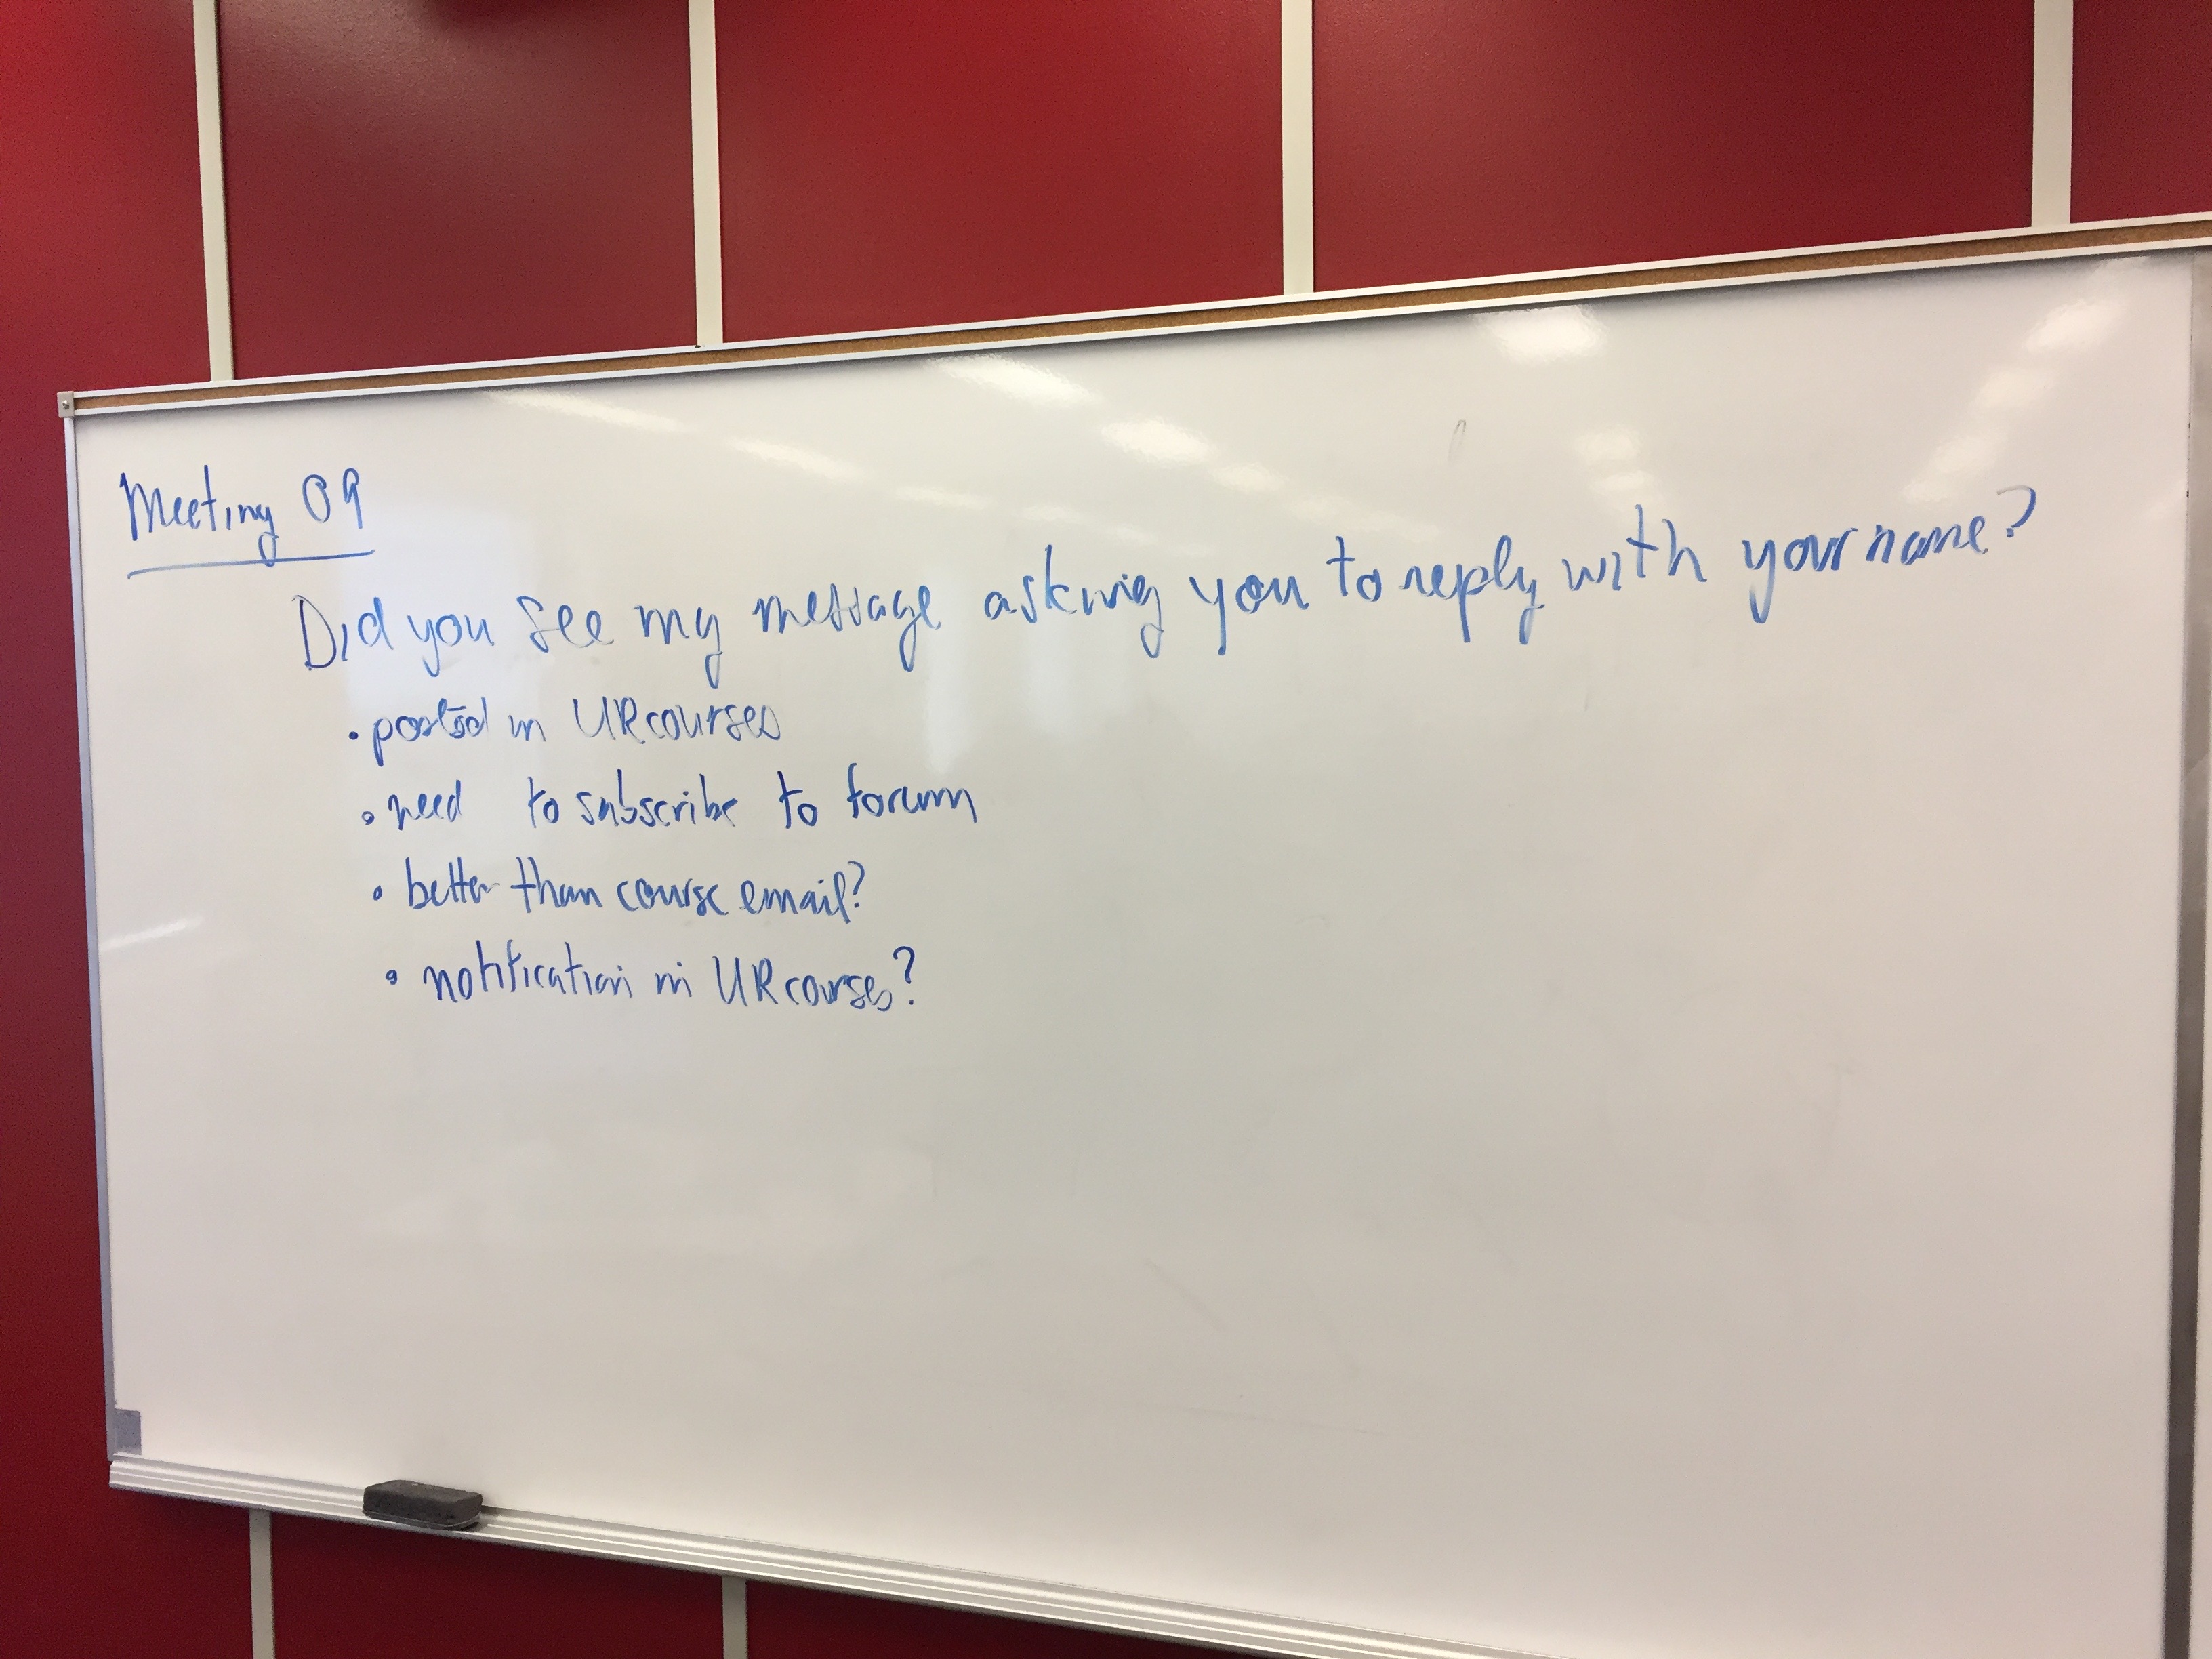 Meeting 09
Did you see my message asking you to reply with your name?
• posted in URcourses
• need to subscribe to forum
• better than course email?
• notification in URcourses?